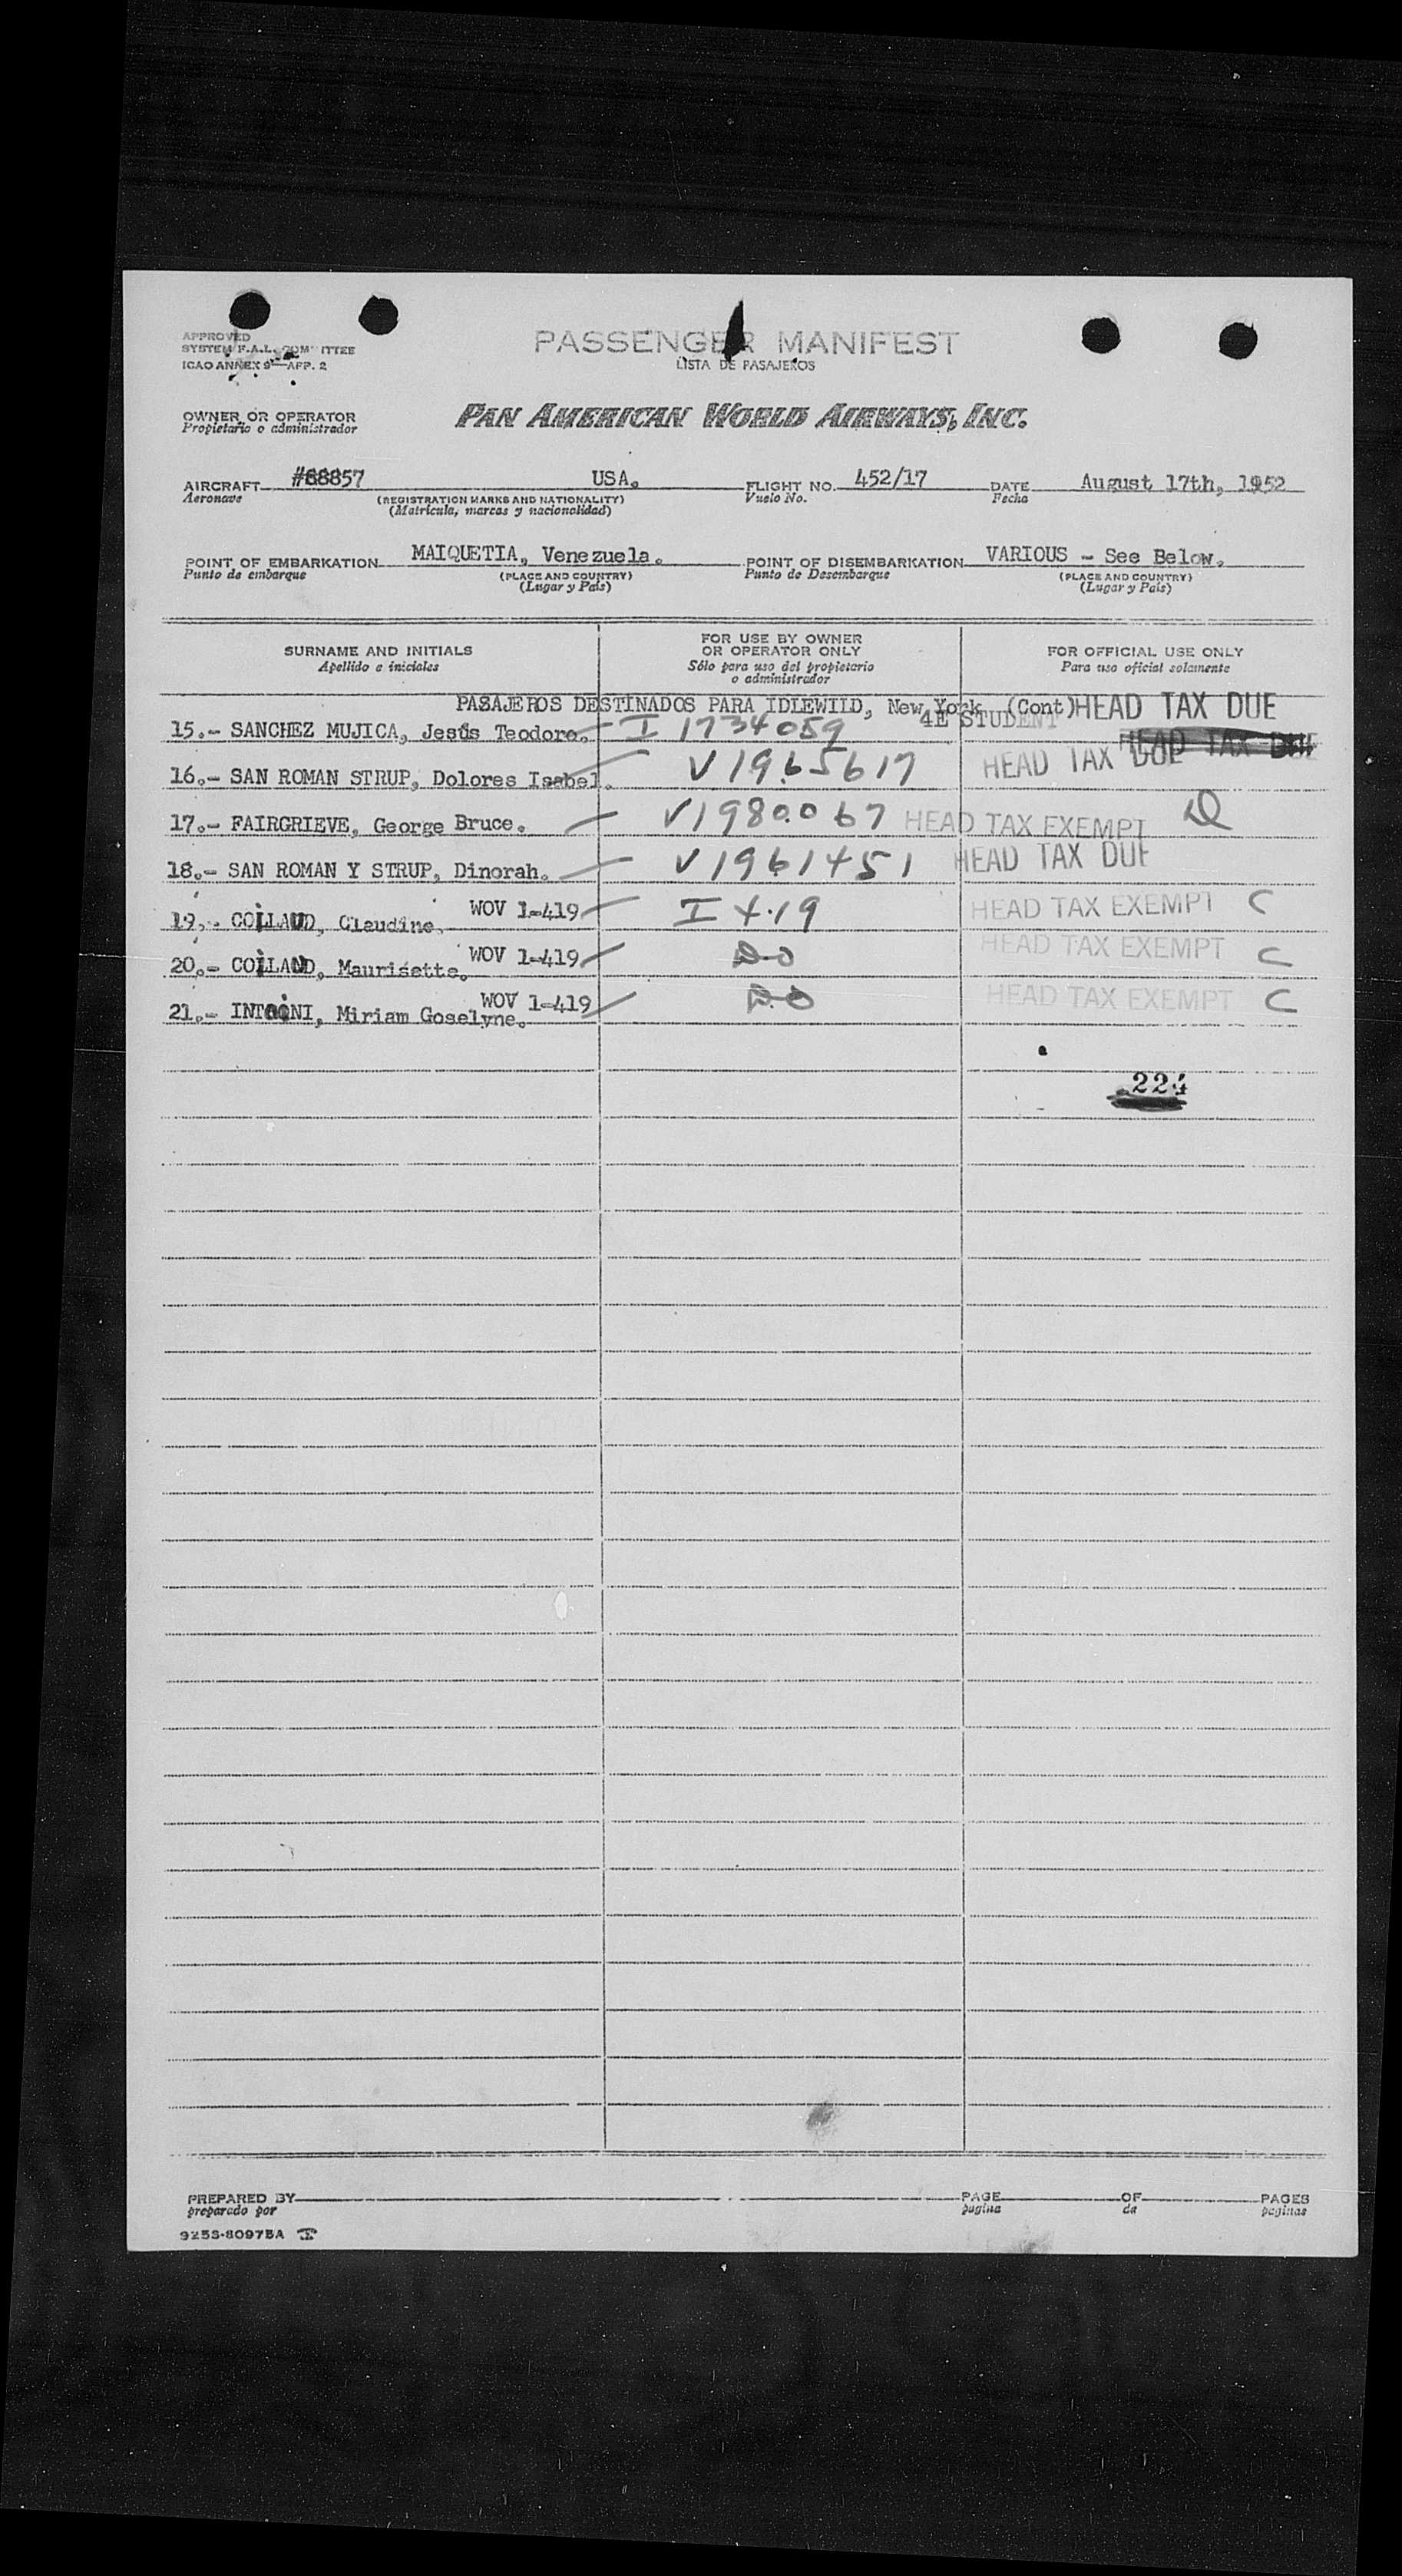 APPROVED
SYSTEM F.A.L. COMMITTEE
ICAO ANNEX 9—APP. 2
PASSENGER MANIFEST
LISTA DE PASAJEROS
OWNER OR OPERATOR
Propietario o administrador
PAN AMERICAN WORLD AIRWAYS, INC.
AIRCRAFT #88857 USA. FLIGHT NO. 452/17 DATE August 17th, 1952
Aeronave (REGISTRATION MARKS AND NATIONALITY) Vuelo No. Fecha
(Matrícula, marcas y nacionalidad)
POINT OF EMBARKATION MAIQUETIA, Venezuela. POINT OF DISEMBARKATION VARIOUS - See Below.
Punto de embarque (PLACE AND COUNTRY) Punto de Desembarque (PLACE AND COUNTRY)
(Lugar y País) (Lugar y País)
SURNAME AND INITIALS
Apellido e iniciales
FOR USE BY OWNER
OR OPERATOR ONLY
Sólo para uso del propietario
o administrador
FOR OFFICIAL USE ONLY
Para uso oficial solamente
PASAJEROS DESTINADOS PARA IDLEWILD, New York (Cont) HEAD TAX DUE
4E STUDENT
15.- SANCHEZ MUJICA, Jesús Teodoro. I 1734059
HEAD TAX DUE
16.- SAN ROMAN STRUP, Dolores Isabel. V1965617 HEAD TAX DUE
17.- FAIRGRIEVE, George Bruce. V1980067 HEAD TAX EXEMPT D
18.- SAN ROMAN Y STRUP, Dinorah. V1961451 HEAD TAX DUE
19.- COLLAUD, Claudine. WOV 1-419 I 419 HEAD TAX EXEMPT C
20.- COLLAUD, Maurisette. WOV 1-419 DO HEAD TAX EXEMPT C
21.- Miriam Goselyne. WOV 1-419 DO HEAD TAX EXEMPT C
224
PREPARED BY PAGE OF PAGES
preparado por pagina de paginas
9253-80975A